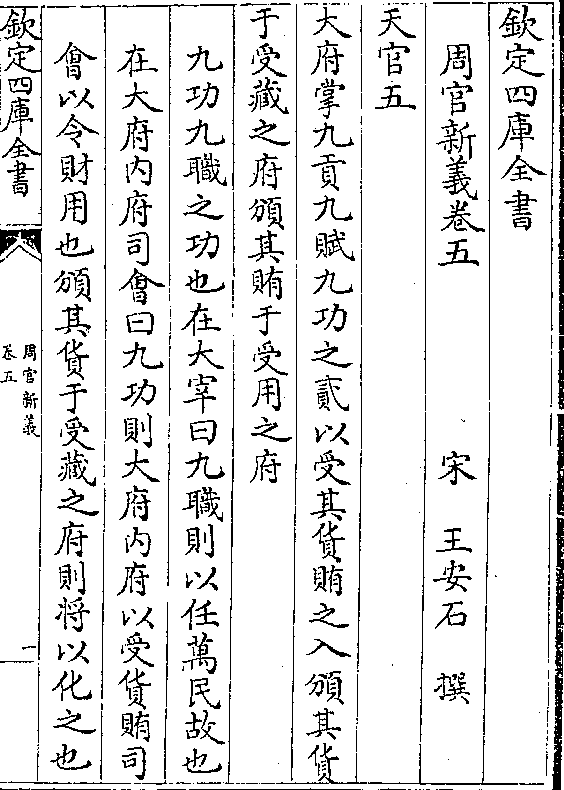 欽定四庫全書
周官新義卷五
宋 王安石 撰
天官五
大府掌九貢九賦九功之貳以受其貨賄之入頒其貨
于受藏之府頒其賄于受用之府
九功九職之功也在大宰曰九職則以任萬民故也
在大府內府司會曰九功則大府內府以受貨賄司
會以令財用也頒其貨于受藏之府則將以化之也
欽定四庫全書
周官新義
卷五
一